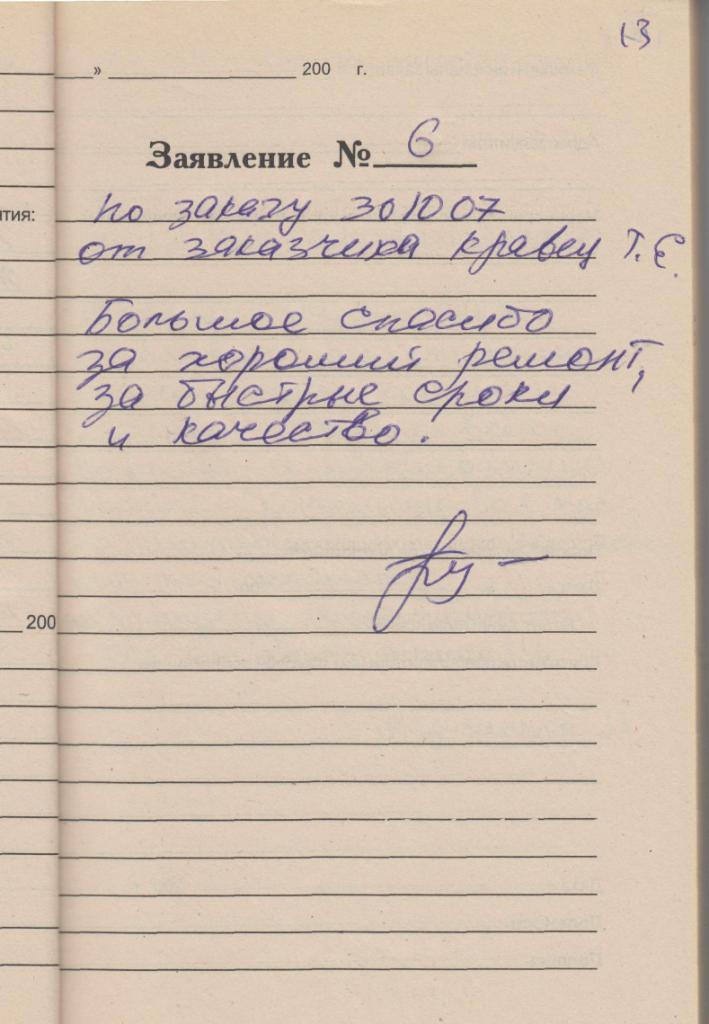 13
» 200 г.
Заявление № 6
тия:
по заказу 301007
от заказчика Кравец Т.Е.
Большое спасибо
за хороший ремонт,
за быстрые сроки
и качество.
200